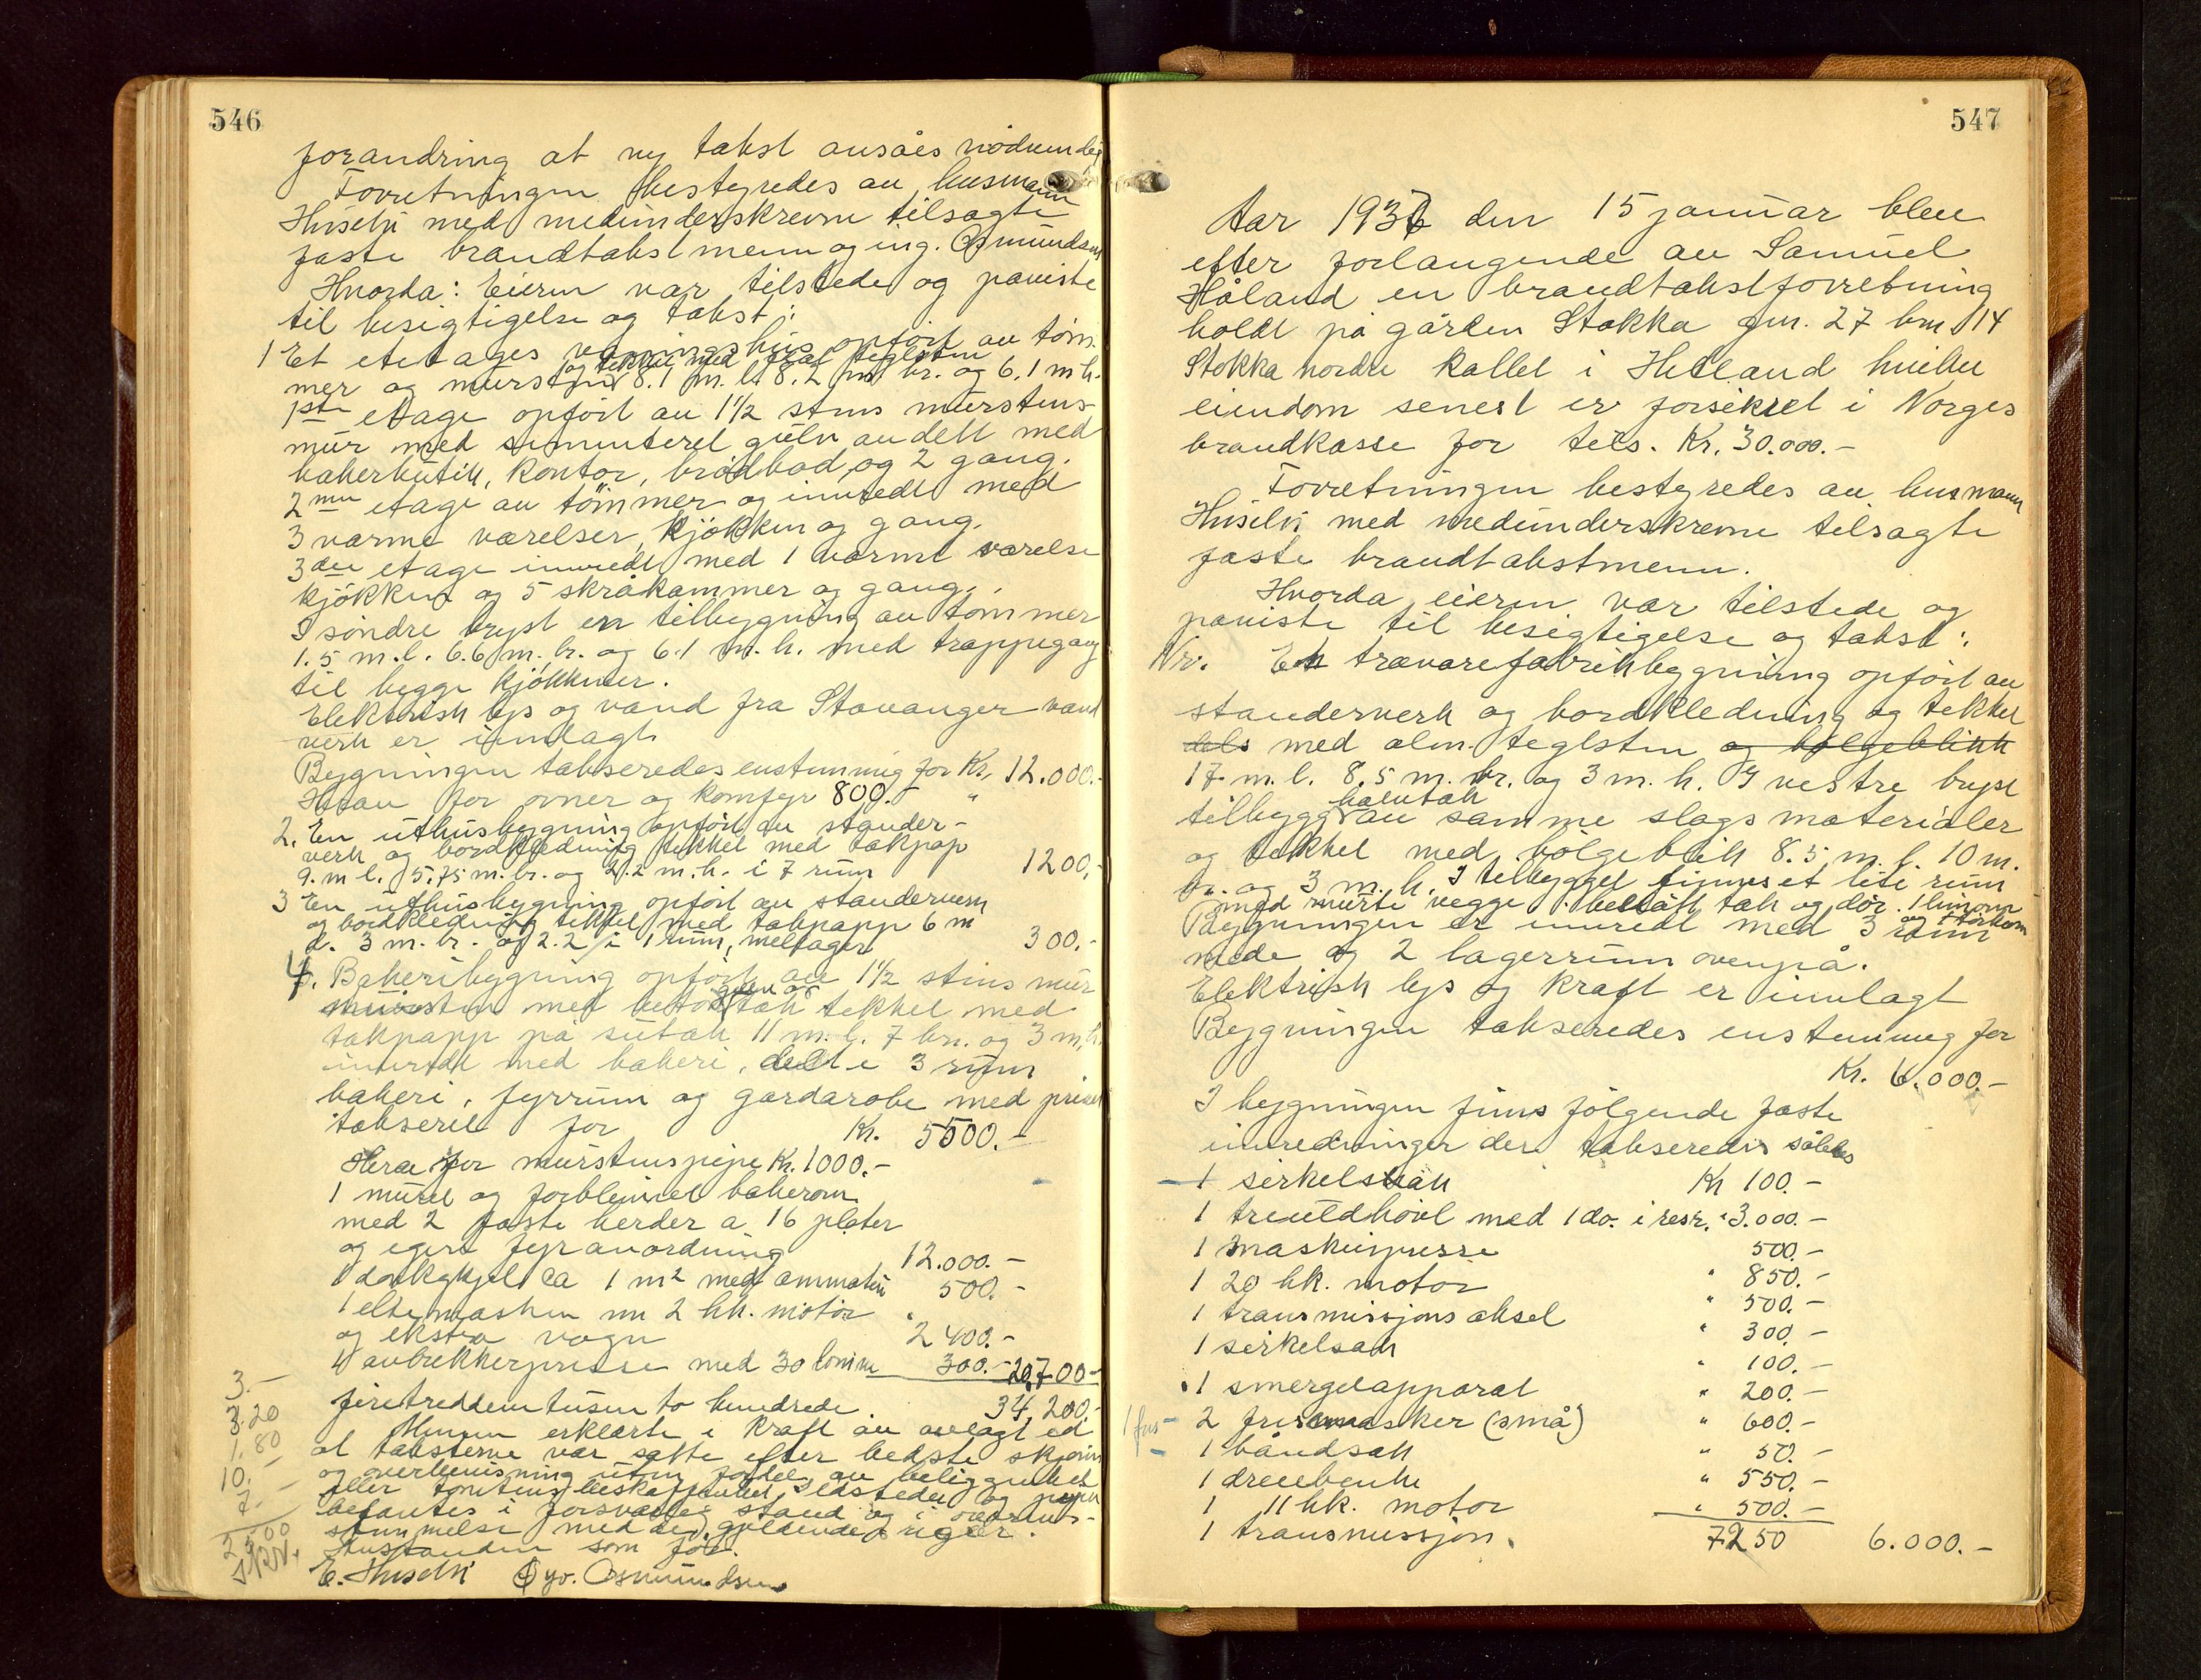 546
forandring at ny takst ansåes nødvendig
Forretningen bestyredes av lensmann
Huselø med medunderskrevne tilsagte
faste brandtakstmenn og ing. Osmundsen
Hvorda: Eieren var tilstede og paviste
til besigtigelse og takst:
1 Et etetages våningshus opført av tøm-
og tekket med glas. teglsten
mer og mursten 8.1 m. l. 8.2 m br. og 6.1 m h.
1ste etage opført av 1½ stens murstens-
mur med sementeret gulv avdelt med
bakerbutik, kontor, brødbod og 2 gang.
2nen etage av tömmer og innredt med
3 varme værelser, kjøkken og gang.
3die etage innredt med 1 varmt værelse
kjøkken og 5 skråkammer og gang.
I søndre bryst en tilbygning av tømmer
1.5 m. l. 6.6 m. br. og 6.1 m. h. med trappegang
til begge kjøkkener.
Elektrisk lys og vand fra Stavanger vand
verk er innlagt
Bygningen takseredes enstemmig for Kr. 12.000.-
Herav for ovner og komfyr 800.- "
2. En uthusbygning opført av stander-
verk og bordkledning tekket med takpap
9. m l. 5,75 m. br. og 2.2 m. h. i 7 rum 1200,-
3 En uthusbygning opført av standerverk
og bordkledning tekket med takpapp 6 m
l. 3 m. br. og 2.2 i 1 rum, mellager 300.-
4. Bakeribygning opført av 1½ stens mur
gulv og
mursten med betontak tekket med
takpapp på sutak 11 m. l. 7 br. og 3 m. h.
innredt med bakeri, delt i 3 rum
bakeri, fyrrum og gardarobe med
takseret for Kr. 5500.-
Herav for murstenspipe Kr. 1000.-
1 muret og forblennet bakerovn
med 2 faste herder a 16 plater
og egen fyranordning 12.000.-
1 ca 1 m² med ammatur 500.-
1 eltemaskin m 2 hk. motor "
og ekstra vogn 2400.-
1 avtrekkerpresse med 30 300.- 20,700-
firetreddentusen to hundrede 34,200,-
Mennen erklærte i kraft av avlagt ed
at taksterne var satte efter bedste skjønn
og overbevisning uten fordel av beliggenhet
eller tomtens beskaffenhet. Ildsteder og piper
befantes i forsvarlig stand og i overens-
stemmelse med de gjeldende regler.
Husstanden som før.
E. Huselø Gyv. Osmundsen
3.-
3.20
1.80
10.-
7.-
25.00
547
Aar 1937 den 15 januar blev
efter forlangende av Samuel
Håland en brandtakstforretning
holdt på gården Stokka gnr. 27 bnr 14
Stokka nordre kallet i Hetland hvilken
eiendom senest er forsikret i Norges
brandkasse for tils. Kr. 30.000.-
Forretningen bestyredes av lensmann
Huselø med medunderskrevne tilsagte
faste brandtakstmenn.
Hvorda eieren var tilstede og
paviste til besigtigelse og takst:
Nr. En trævarefabrikbygning opført av
standerverk og bordkledning og tekket
dels med alm. teglsten og bølgeblikk
17 m. l. 8.5 m. br. og 3 m. h. I vestre bryst
halvtak
tilbygg av samme slags materialer
og tekket med bølgeblik 8.5 m. l. 10 m.
br. og 3 m. h. I tilbygget finnes et lite rum
med murte vegge i tak og dør. 1 limovn
og tørkom
Bygningen er innredt med 3 rum
nede og 2 lagerrum ovenpå.
Elektrisk lys og kraft er innlagt
Bygningen takseredes enstemmig for
Kr. 6.000.-
I bygningen fins følgende faste
innredninger der takseredes således
1 sirkelsak Kr 100.-
1 treutdhøvl med 1 do. i resr. " 3.000.-
1 maskinpresse 500.-
1 20 hk. motor " 850.-
1 transmissjons aksel " 500.-
1 sirkelsak " 300.-
" 100.-
1 smergelapparat " 200.-
1 fres- 2 fresemasker (små) " 600.-
1 båndsak " 50.-
1 dreiebenk " 550.-
1 11 hk. motor " 500.-
1 transmissjon. 7250 6.000.-